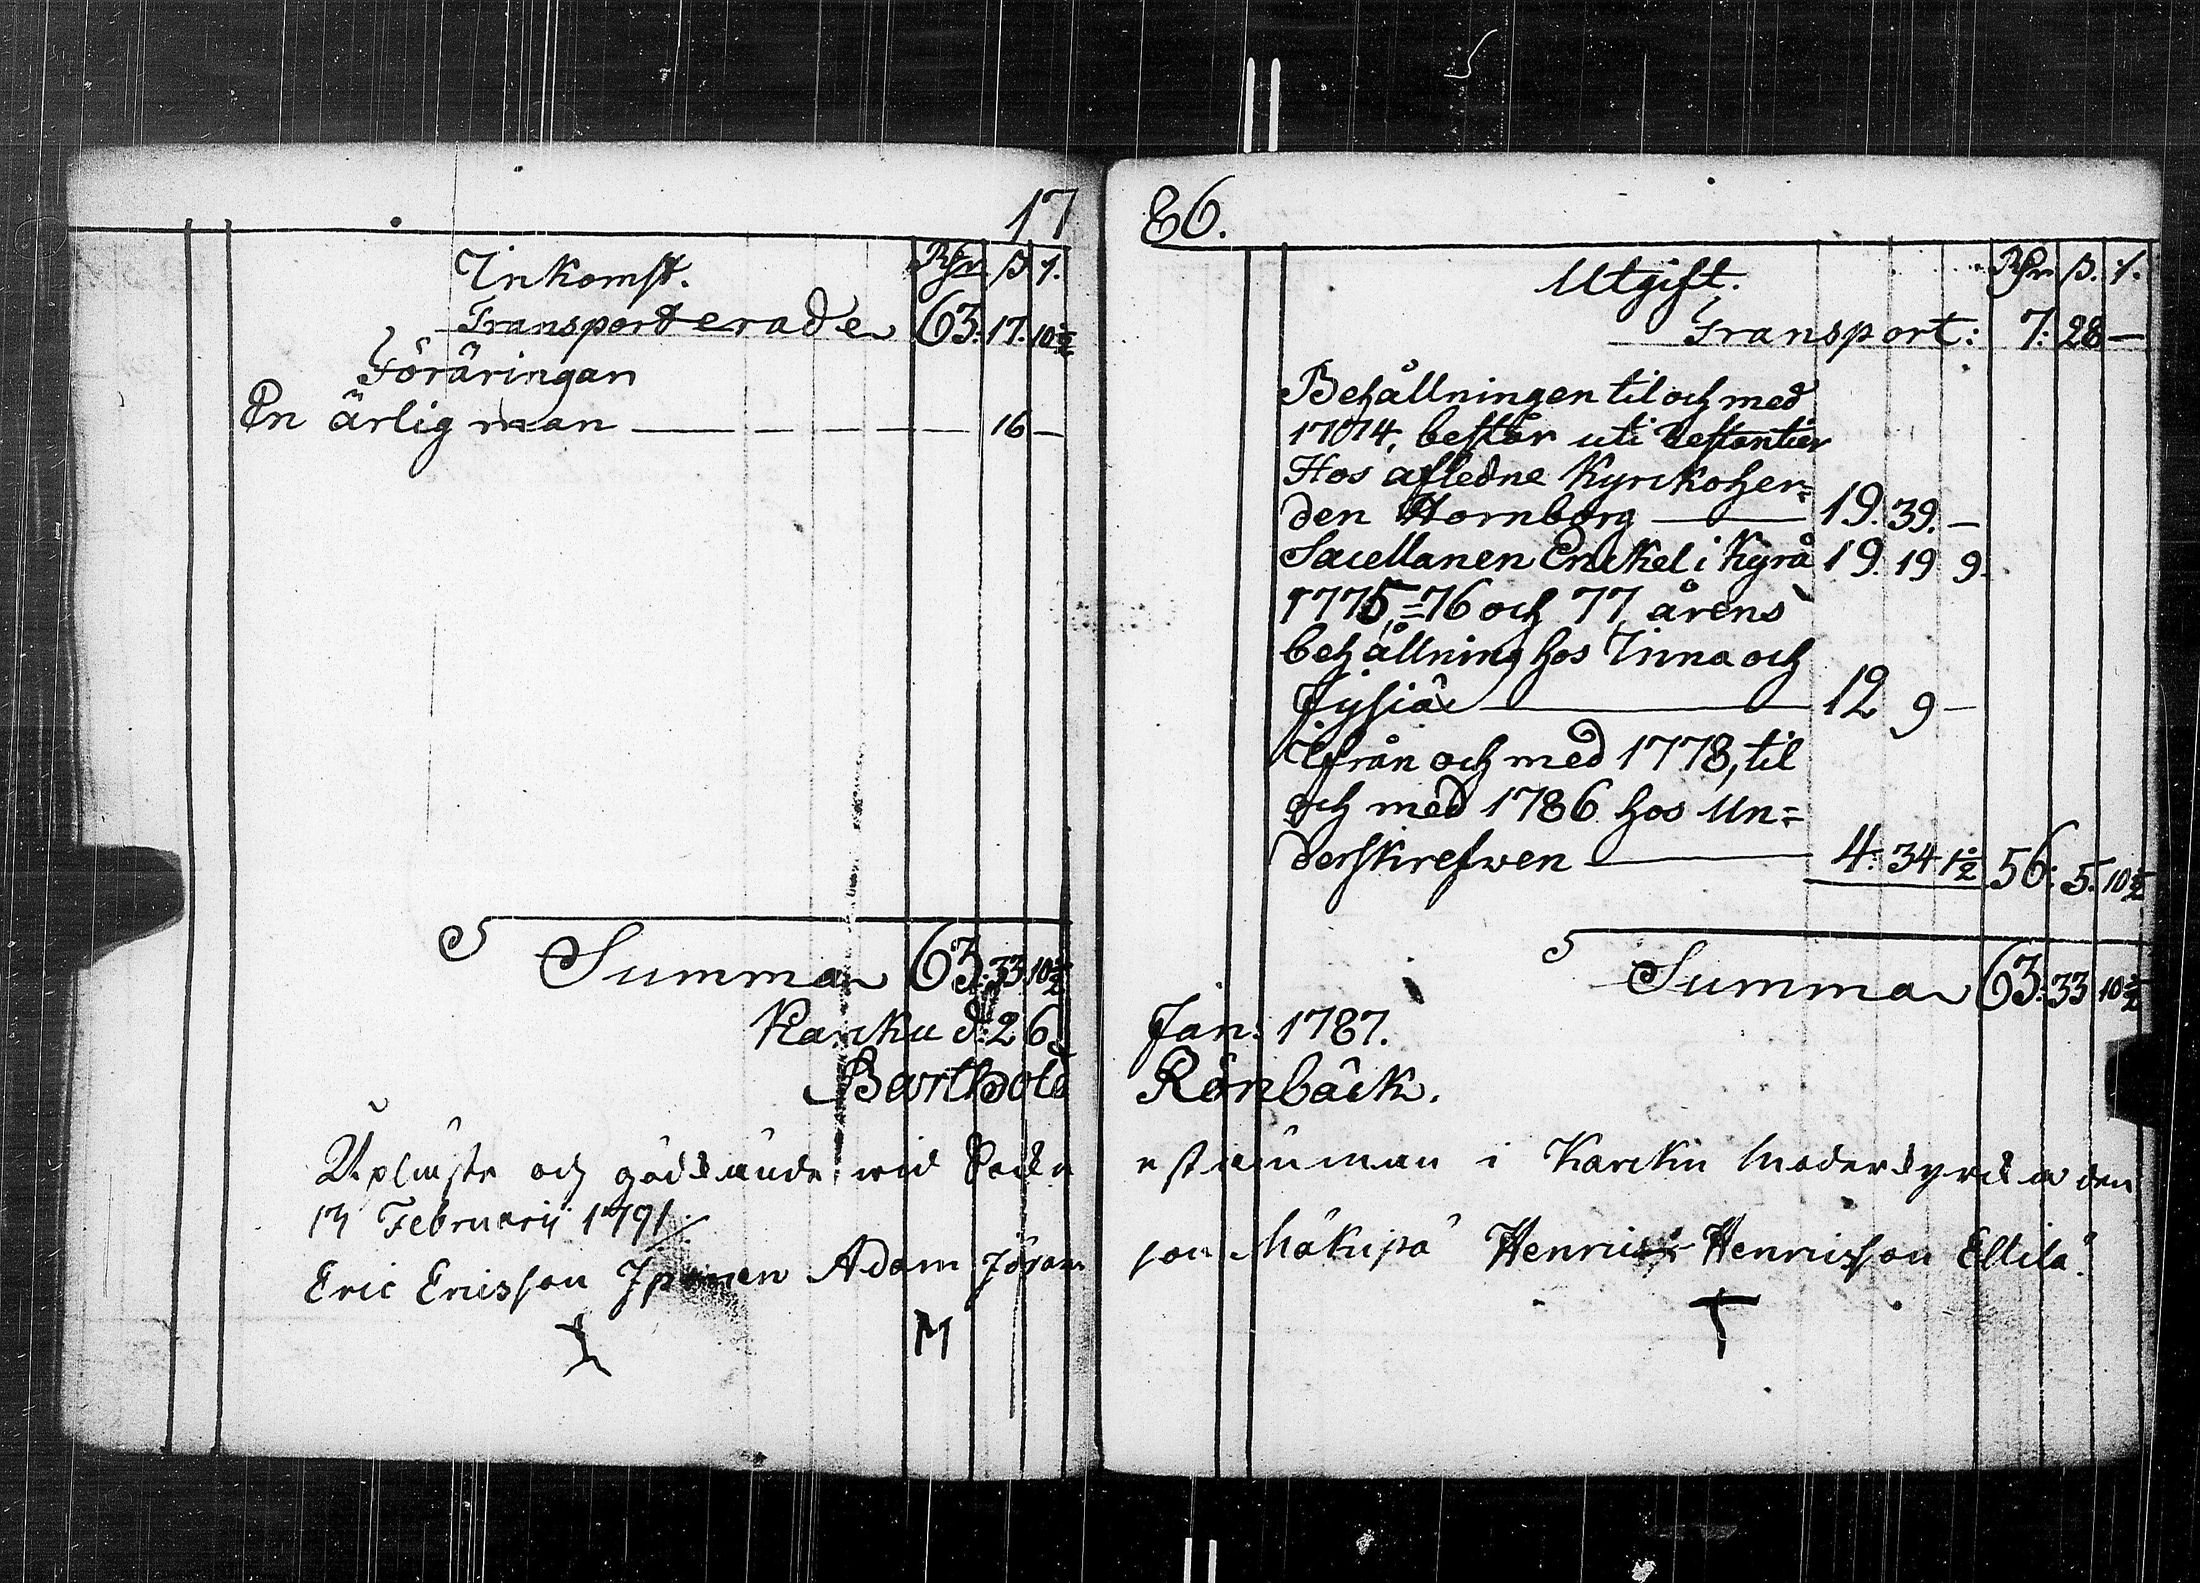 17
Inkomst. Rdr ß r.
Transporterade 63. 17. 10½
Föräringar
En ärlig man — — — — — 16 —
Summa 63. 33 10½
Karcku d. 26
Barthold
Upläste och godkände wid Sock
13 Februarii 1791
Eric Ericsson Adam Jöran
M
86.
Utgift. Rdr ß. r.
Transport: 7: 28 —
Behållningen til och med
1774, består uti Restantier
Hos afledne Kyrckoher=
den Hornborg — 19. 39. —
Sacellanen Enckel i Kyrå 19. 19 9.
1775, =76 och 77, årens
behållning hos Inna och
Jysiä — 12 9 —
Ifrån och med 1778, til
och med 1786 hos Un=
derskrefwen — 4. 34 1½ 56: 5. 10½
Summa 63. 33 10½
Jan: 1787.
Rönbäck.
nestämman i Karcku Moderkyrcka den
son Mäkipä Henric Henricsson Ellilä.
T